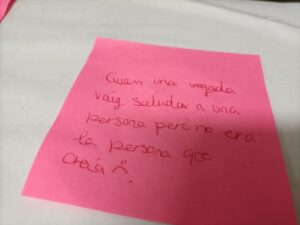 Cuan una vegada
vaig saludar a una
persona però no era
la persona que
creia :(